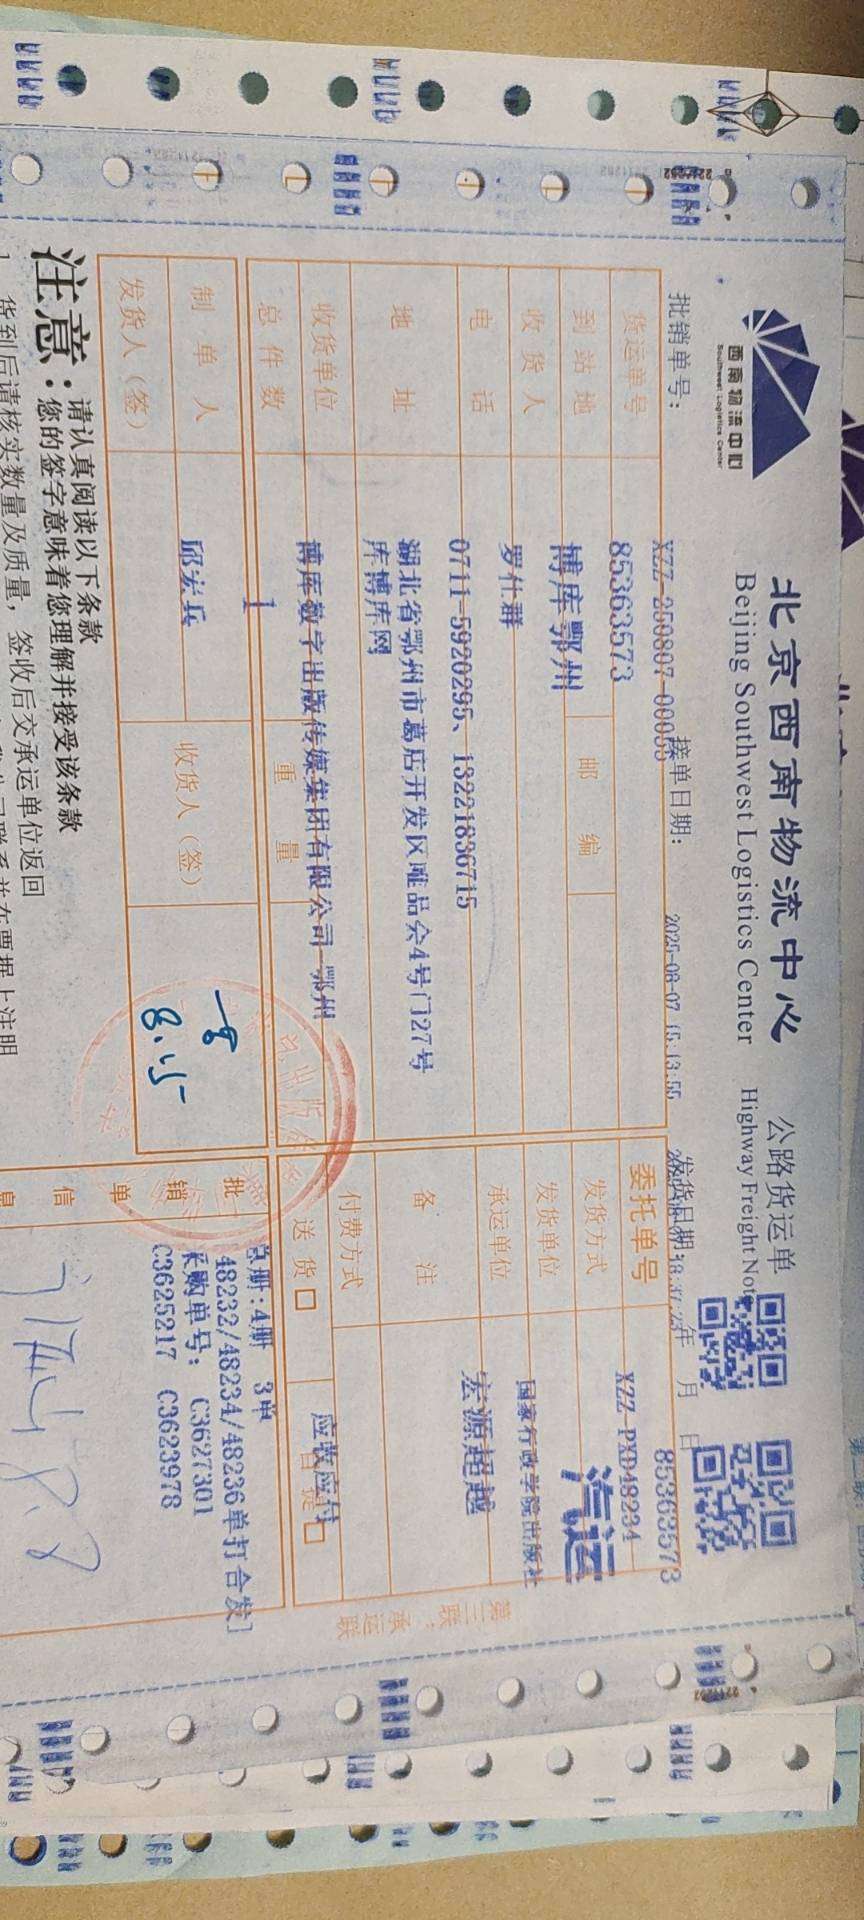 西南物流中心
Southwest Logistics Center
北京西南物流中心 公路货运单
Beijing Southwest Logistics Center Highway Freight Note
批销单号: XZZ-250807-00055 接单日期: 2025-08-07 15:13:55 发货日期: 年 月 日
85363573
货运单号 85363573 委托单号 XZZ-PXD48234
到站地 博库鄂州 邮编 发货方式 汽运
收货人 罗仕群 发货单位 国家行政学院出版社
电话 0711-5920295、13221836715 承运单位 宏源超越
地址 湖北省鄂州市葛店开发区唯品会4号门27号
库博库网 备注
收货单位 博库数字出版传媒集团有限公司-鄂州 付费方式 应收应付
总件数 1 重量 送货 自提
制单人 邱宏兵 收货人(签) 8.15
发货人(签)
批销单信息
总册:4册 3单
48232/48234/48236单打合发]
采购单号: C3627301
C3625217 C3623978
第三联:承运联
注意: 请认真阅读以下条款
您的签字意味着您理解并接受该条款
1、货到后请核实数量及质量,签收后交承运单位返回